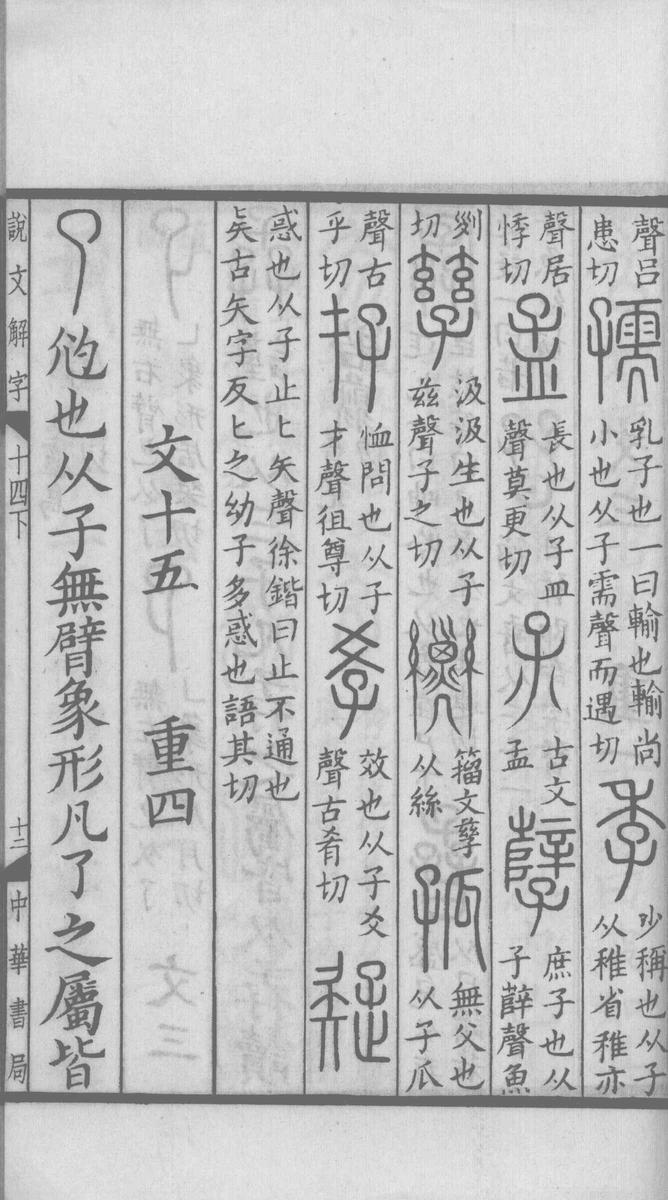 聲呂患切 孺 乳子也一曰輸也輸尚小也从子需聲而遇切 季 少稱也从子从稚省稚亦
聲居悸切 孟 長也从子皿聲莫更切 古文孟 孼 庶子也从子薛聲魚
列切 孳 汲汲生也从子兹聲子之切 籀文孳从絲 孤 無父也从子瓜
聲古乎切 存 恤問也从子才聲徂尊切 𡥈 效也从子爻聲古肴切 疑
惑也从子止匕矢聲徐鍇曰止不通也
𠤕古矢字反匕之幼子多惑也語其切
文十五 重四
了 尥也从子無臂象形凡了之屬皆
說文解字 十四下 十二 中華書局